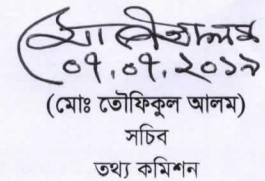 ০৭.০৭.২০১৯
(মোঃ তৌফিকুল আলম)
সচিব
তথ্য কমিশন